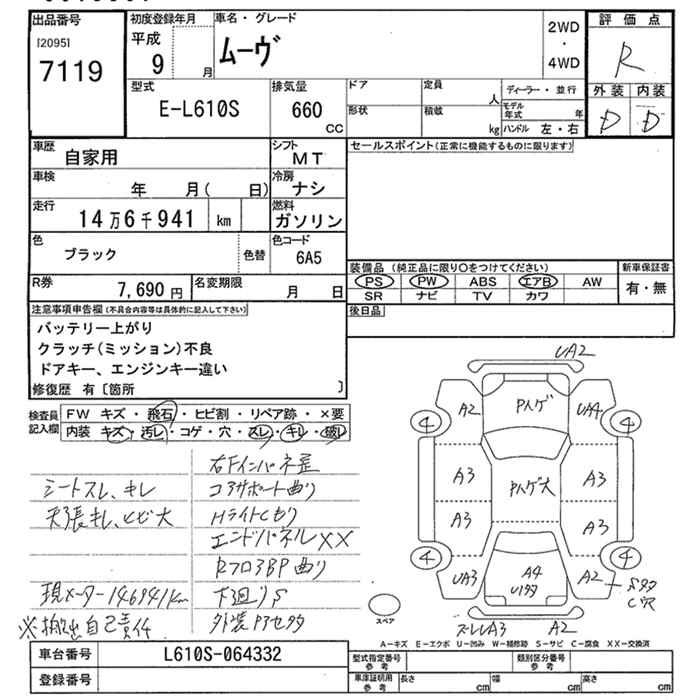 出品番号
[2095]
7119
初度登録年月
平成
9 月
車名・グレード
ムーヴ
2WD
・
4WD
評価点
R
外装 内装
D D
型式
E-L610S
排気量
660
CC
ドア
定員
人
ディーラー・並行
形状
積載
kg
モデル年式 年
ハンドル 左・右
車歴
自家用
シフト
MT
セールスポイント(正常に機能するものに限ります)
車検
年 月( 日)
冷房
ナシ
走行
14万6千941 km
燃料
ガソリン
色
ブラック
色替
色コード
6A5
装備品 (純正品に限り○をつけてください)
PS PW ABS エアB AW
SR ナビ TV カワ
新車保証書
有・無
R券
7,690 円
名変期限
月 日
後日品
注意事項申告欄(不具合内容等は具体的に記入して下さい)
バッテリー上がり
クラッチ(ミッション)不良
ドアキー、エンジンキー違い
修復歴 有〔箇所 〕
検査員記入欄
FW キズ・飛石・ヒビ割・リペア跡・×要
内装 キズ・汚レ・コゲ・穴・スレ・キレ・破レ
シートスレ、キレ
天張キレ、ヒビ大
現メーター146941km
※搬出自己責任
右Fインパネ歪
コアサポート曲り
Hライトくもり
エンドパネルXX
RフロアBP曲り
下廻りS
外装PアセタタI
UA2
A2
Pハゲ
UA4
4
4
A3
Pハゲ大
A3
A3
A3
4
4
UA3
A4
U1タタ
A2
Sタタ
C穴
スペア
UA3
A2
A-キズ E-エクボ U-凹み W-補修跡 S-サビ C-腐食 XX-交換済
車台番号
L610S-064332
登録番号
型式指定番号
参考
類別区分番号
参考
車庫証明用
参考
長さ cm
幅 cm
高さ cm